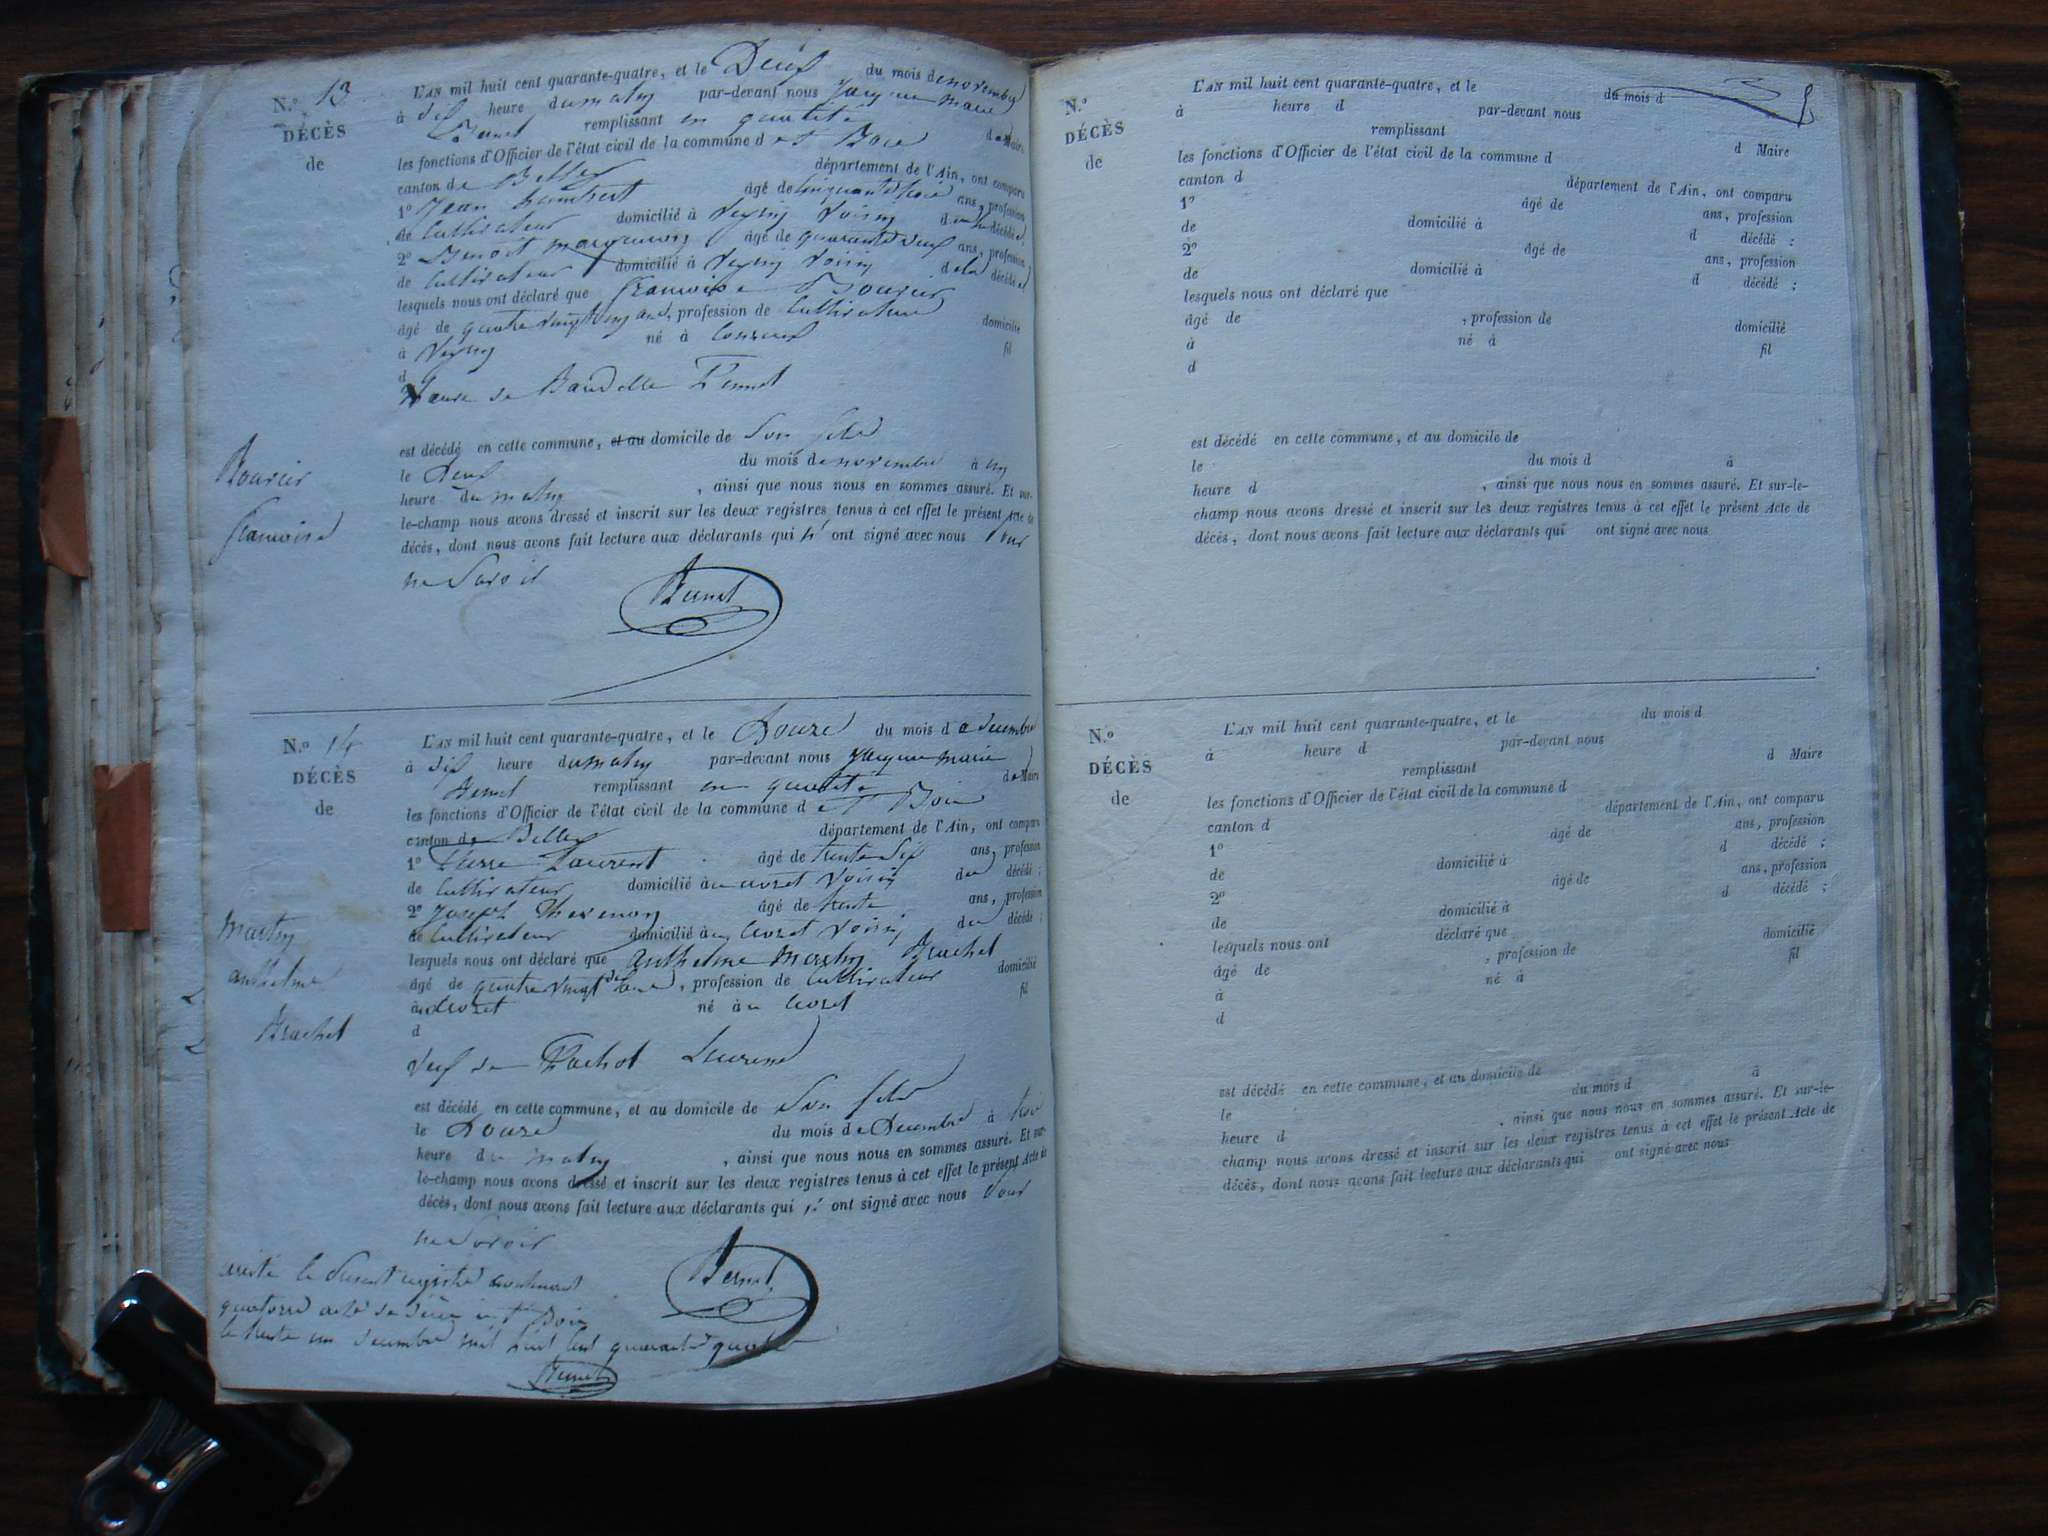 N.º 13
DÉCÈS
de
L'AN mil huit cent quarante-quatre, et le Deux du mois de novembre
à dix heure du matin par-devant nous Jacque Marie
Bernet remplissant en qualité de Maire
les fonctions d'Officier de l'état civil de la commune de St Bois
canton de Belley département de l'Ain, ont comparu
1º Jean Humbert âgé de cinquante trois ans, profession
de Cultivateur domicilié à Veyrin Voisin de la décédée;
2º Benoit âgé de quarante neuf ans, profession
de Cultivateur domicilié à Veyrin Voisin de la décédée
lesquels nous ont déclaré que françoise Bourier
âgé de quatre vingt cinq ans, profession de Cultivateur domicilié
à Veyrin né à fil
d
Veuve de Bernet
est décédé en cette commune, et au domicile de Son fils
le Deux du mois de novembre à un
heure du matin, ainsi que nous nous en sommes assuré. Et sur-
le-champ nous avons dressé et inscrit sur les deux registres tenus à cet effet le présent Acte de
décès, dont nous avons fait lecture aux déclarants qui n' ont signé avec nous pour
ne Savoir
Bernet
Bourier
françoise
N.º 14
DÉCÈS
de
L'AN mil huit cent quarante-quatre, et le Douze du mois de decembre
à dix heure du matin par-devant nous Jacque Marie
Bernet remplissant en qualité de Maire
les fonctions d'Officier de l'état civil de la commune de St Bois
canton de Belley département de l'Ain, ont comparu
1º Pierre Laurent âgé de trente Six ans, profession
de Cultivateur domicilié au crozet Voisin du décédé;
2º Joseph Thevenon âgé de trente ans, profession
de Cultivateur domicilié au Crozet Voisin du décédé;
lesquels nous ont déclaré que anthelme Martin Brachet
âgé de quatre vingt deux ans, profession de Cultivateur domicilié
au Crozet né au Crozet fil
d
Veuf de Laurence
est décédé en cette commune, et au domicile de Son fils
le Douze du mois de Decembre à trois
heure du matin, ainsi que nous nous en sommes assuré. Et sur-
le-champ nous avons dressé et inscrit sur les deux registres tenus à cet effet le présent Acte de
décès, dont nous avons fait lecture aux déclarants qui n' ont signé avec nous pour
ne Savoir
Bernet
Martin
anthelme
Brachet
arreté le present registre contenant
quatorze acte de décès à St Bois
le trente un decembre mil huit cent quarante quatre
Bernet
N.º
DÉCÈS
de
L'AN mil huit cent quarante-quatre, et le du mois d
à heure d par-devant nous
remplissant d Maire
les fonctions d'Officier de l'état civil de la commune d
canton d département de l'Ain, ont comparu
1º âgé de ans, profession
de domicilié à d décédé;
2º âgé de ans, profession
de domicilié à d décédé;
lesquels nous ont déclaré que
âgé de , profession de domicilié
à né à fil
d
est décédé en cette commune, et au domicile de
le du mois d à
heure d , ainsi que nous nous en sommes assuré. Et sur-le-
champ nous avons dressé et inscrit sur les deux registres tenus à cet effet le présent Acte de
décès, dont nous avons fait lecture aux déclarants qui ont signé avec nous
N.º
DÉCÈS
de
L'AN mil huit cent quarante-quatre, et le du mois d
à heure d par-devant nous
remplissant d Maire
les fonctions d'Officier de l'état civil de la commune d
canton d département de l'Ain, ont comparu
1º âgé de ans, profession
de domicilié à d décédé;
2º âgé de ans, profession
de domicilié à d décédé;
lesquels nous ont déclaré que
âgé de , profession de domicilié
à né à fil
d
est décédé en cette commune, et au domicile de
le du mois d à
heure d , ainsi que nous nous en sommes assuré. Et sur-le-
champ nous avons dressé et inscrit sur les deux registres tenus à cet effet le présent Acte de
décès, dont nous avons fait lecture aux déclarants qui ont signé avec nous